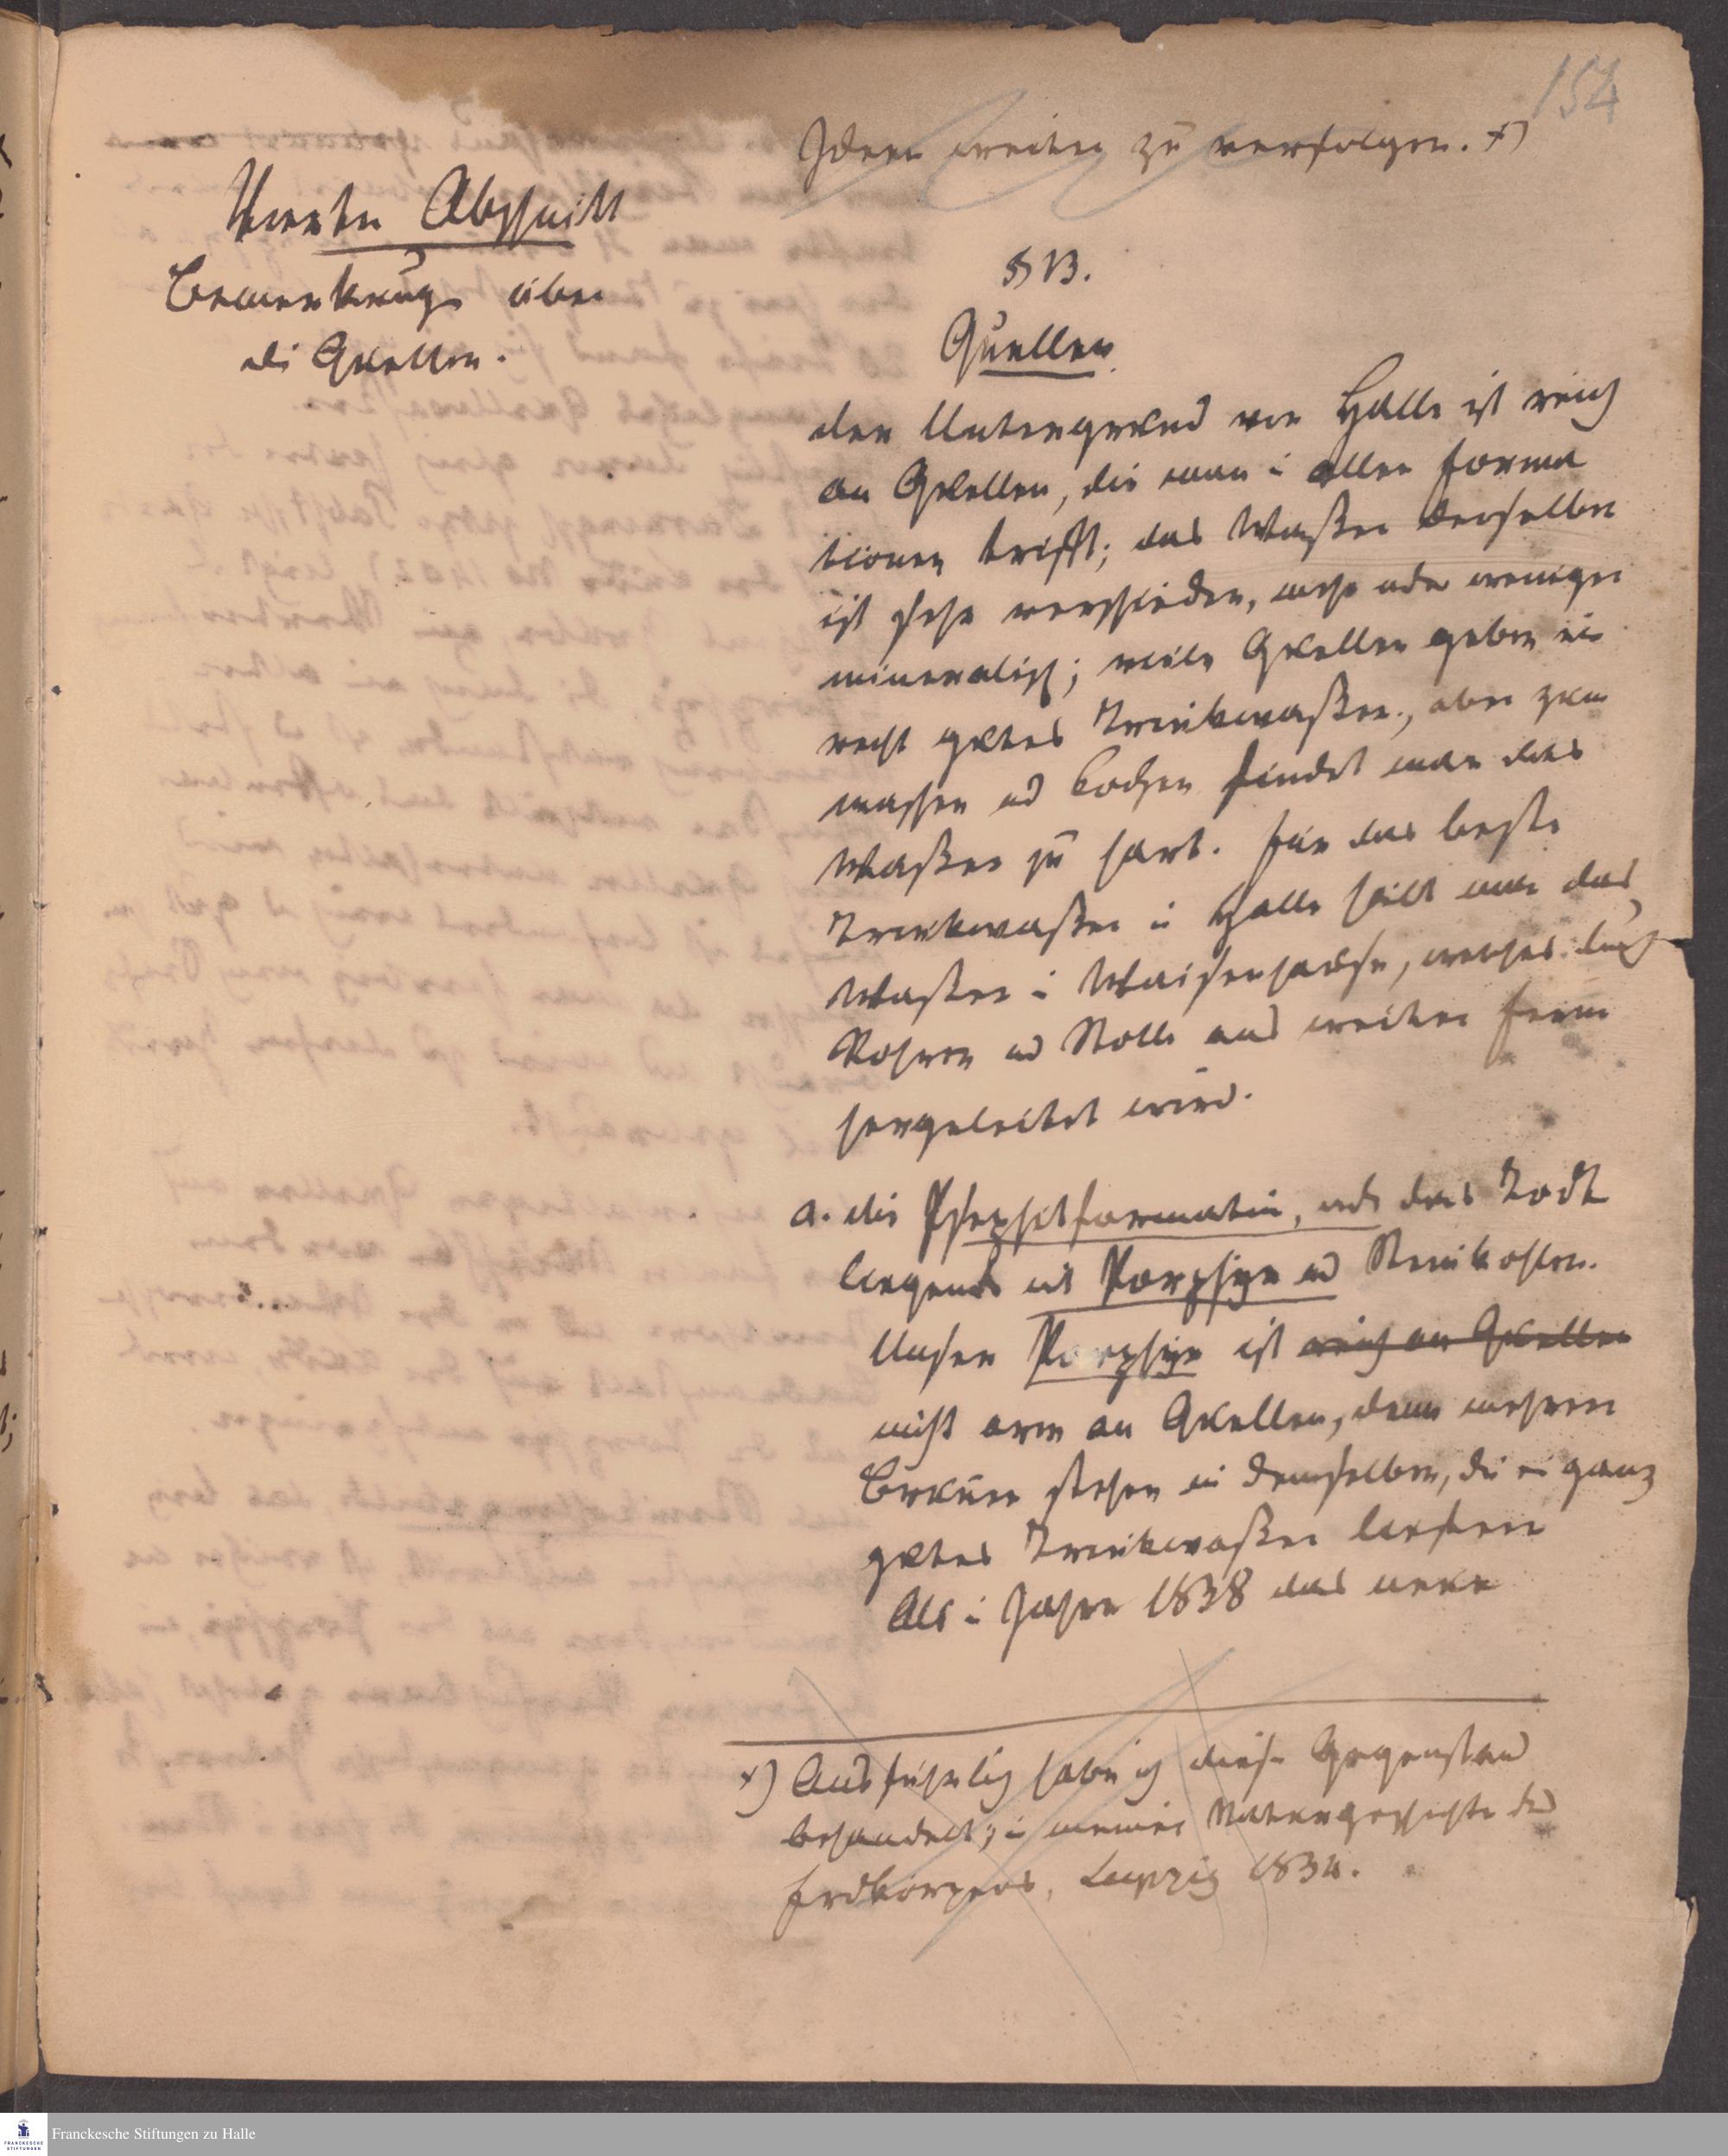 154
Ideen weiter zu verfolgen. *)
Vierter Abschnitt
Bemerkung über
die Quellen.
§ 13.
Quellen.
der Untergrund von Halle ist reich
an Quellen, die man i allen Forma
tionen trifft; das Waßer derselben
ist sehr verschieden, mehr oder weniger
mineralisch; viele Quellen geben ein
recht gutes Trinkwaßer, aber zum
waschen ud kochen findet man das
Waßer zu hart. Für das beste
Trinkwaßer i Halle hält man das
Waßer i Waisenhause, welches durch
Rohren ud Stolle aus weiter Ferne
hergeleitet wird.
a. die Psephitformation, ode das Todt
liegende mit Porphyr ud Steinkohlen.
Unser Porphyr ist reich an Quellen
nicht arm an Quellen, denn mehrere
Brunen stehen in demselben, die ei ganz
gutes Trinkwaßer liefern
Als i Jahre 1838 das neue
*) Ausführlich habe ich diesen Gegenstand
behandelt; i meiner Naturgeschichte des
Erdkörpers, Leipzig 1834.
Franckesche Stiftungen zu Halle
FRANCKESCHE
STIFTUNGEN